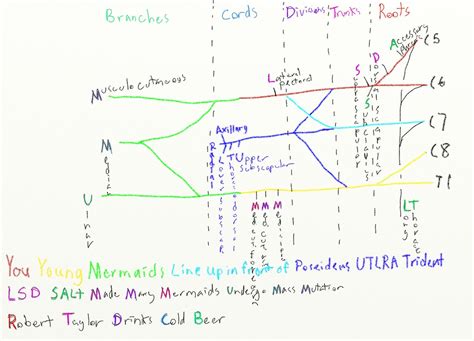 Branches Cords Divisions Trunks Roots
Accessory
C5
Musculocutaneous
Lateral pectoral
Suprascapular
Subclavius
Dorsal scapular
C6
Median
Axillary
Radial
Lower subscapular
Thoracodorsal
Upper subscapular
C7
C8
Ulnar
T1
Med cut
Long thoracic
You Young Mermaids Line up in front of Poseidens UTLRA Trident
LSD SALT Made Many Mermaids Undergo Mass Mutation
Robert Taylor Drinks Cold Beer